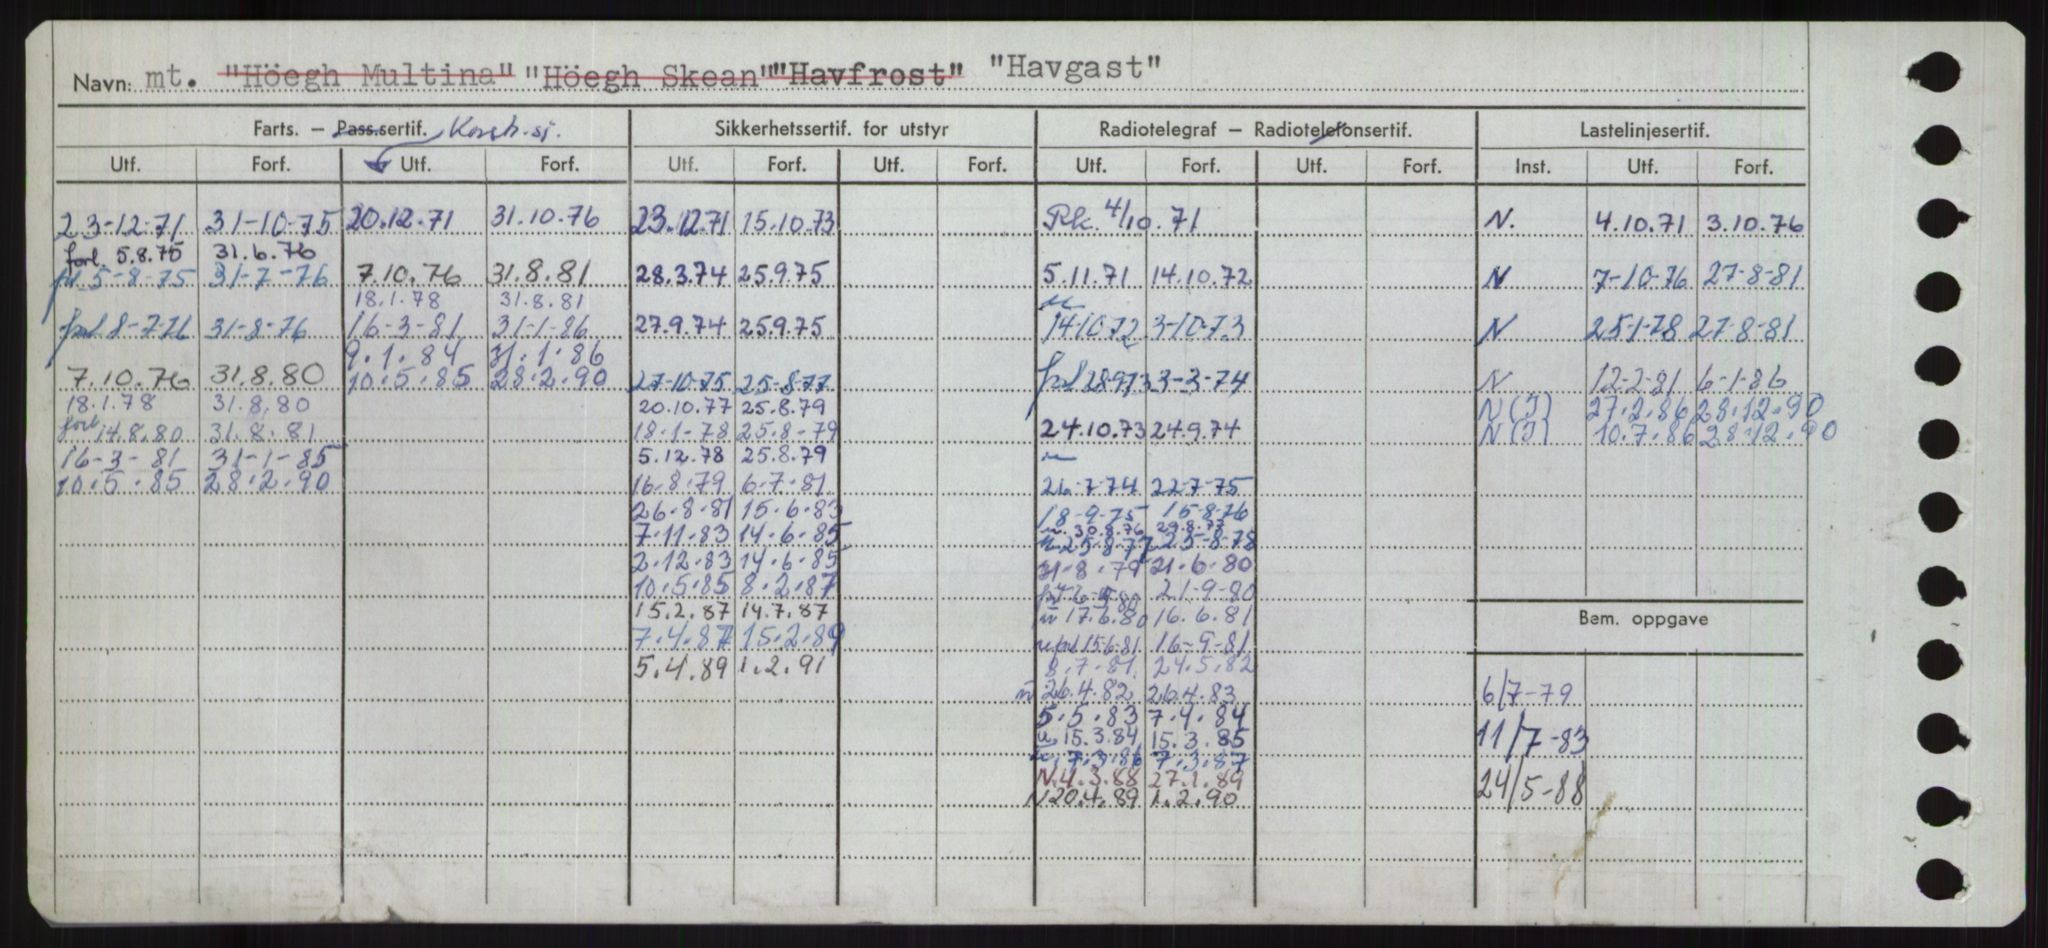 Navn: mt. "Höegh Multina" "Höegh Skean" "Havfrost" "Havgast"
Farts. – Pass.sertif. Sikkerhetssertif. for utstyr Radiotelegraf – Radiotelefonsertif. Lastelinjesertif.
Utf. Forf. Utf. Forf. Utf. Forf. Utf. Forf. Utf. Forf. Utf. Forf. Inst. Utf. Forf.
23-12-71 31-10-75 20.12.71 31.10.76 23.12.71 15.10.73 Rk. 4/10.71 N. 4.10.71 3.10.76
forl. 5.8.75 31.6.76
5-8-75 31-7-76 7.10.76 31.8.81 28.3.74 25.9.75 5.11.71 14.10.72 N 7-10-76 27-8-81
18.1.78 31.8.81
8-7-76 31-8-76 16-3-81 31-1-86 27.9.74 25.9.75 14.10.72 3-10-73 N 25-1-78 27-8-81
9.1.84 31.1.86
7.10.76 31.8.80 10.5.85 28.2.90 27-10-75 25-8-77 28973 3-3-74 N 12-2-81 6-1-86
18.1.78 31.8.80 20.10.77 25.8.79 N(I) 27.2.86 28.12.90
forl 14.8.80 31.8.81 18-1-78 25-8-79 24.10.73 24.9.74 N(I) 10.7.86 28.12.90
16-3-81 31-1-85 5.12.78 25.8.79
10.5.85 28.2.90 16.8.79 6.7.81 26-7-74 22-7-75
26.8.81 15.6.83 18-9-75 15-8-76
7.11.83 14.6.85 30.8.76 29.8.77
25.8.77 25-8-78
2.12.83 14.6.85 31.8.79 21.6.80
10.5.85 8.2.87 21-9-80
15.2.87 14.7.87 17.6.80 16.6.81
Bem. oppgave
7.4.87 15.2.89 15.6.81 16-9-81
5.4.89 1.2.91 8.7.81 24.5.82
26.4.82 26.4.83 6/7-79
5.5.83 7.4.84
15.3.84 15.3.85 11/7-83
7.3.86 7.3.87
N.4.3.88 27.1.89
N 20.4.89 1.2.90 24/5-88